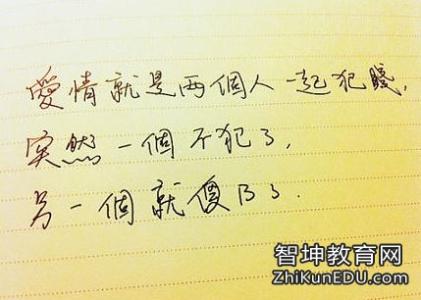 愛情就是兩個人一起犯賤,
突然一個不犯了,
另一個就傻B了.
智坤教育网
ZhiKunEDU.com